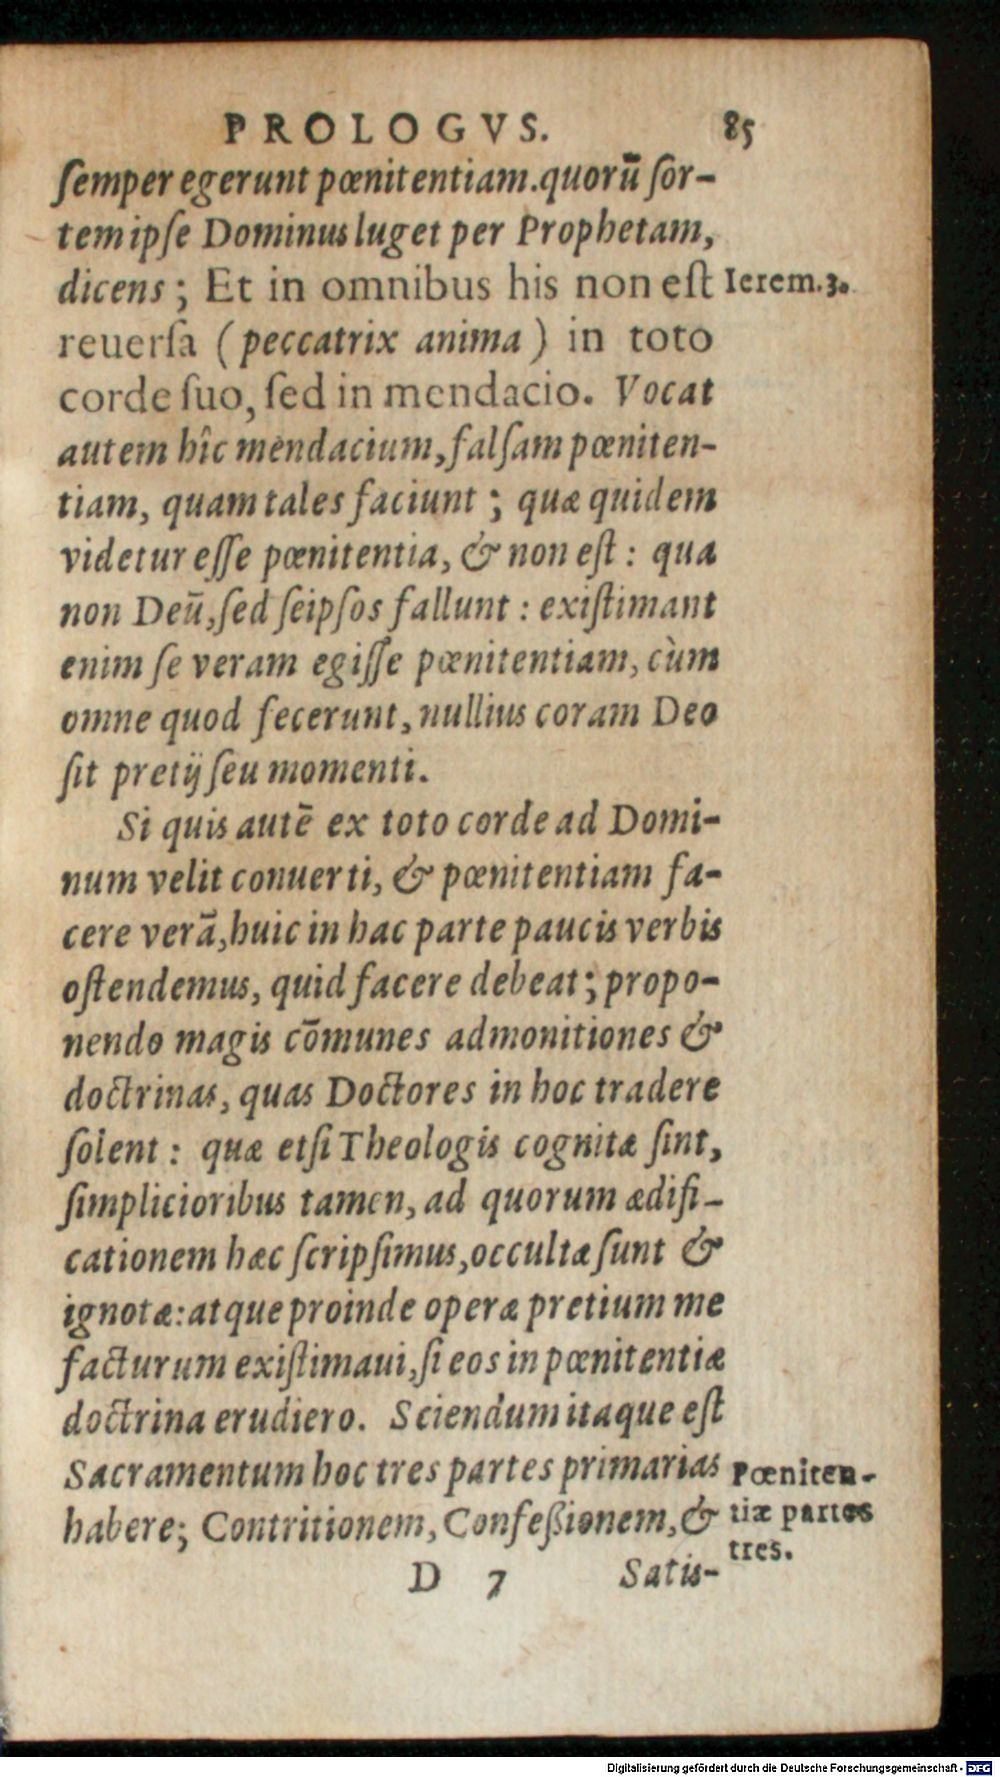 PROLOGVS. 85
ſemper egerunt pœnitentiam. quorū ſor-
tem ipſe Dominus luget per Prophetam,
dicens; Et in omnibus his non eſt Ierem. 3.
reuerſa (peccatrix anima) in toto
corde ſuo, ſed in mendacio. Vocat
autem hîc mendacium, falſam pœniten-
tiam, quam tales faciunt; quæ quidem
videtur eſſe pœnitentia, & non eſt: qua
non Deū, ſed ſeipſos fallunt: exiſtimant
enim ſe veram egiſſe pœnitentiam, cùm
omne quod fecerunt, nullius coram Deo
ſit pretij ſeu momenti.
Si quis autē ex toto corde ad Domi-
num velit conuerti, & pœnitentiam fa-
cere verā, huic in hac parte paucis verbis
oſtendemus, quid facere debeat; propo-
nendo magis cōmunes admonitiones &
doctrinas, quas Doctores in hoc tradere
ſolent: quæ etſi Theologis cognitæ ſint,
ſimplicioribus tamen, ad quorum ædifi-
cationem hæc ſcripſimus, occultæ ſunt &
ignotæ: atque proinde operæ pretium me
facturum exiſtimaui, ſi eos in pœnitentiæ
doctrina erudiero. Sciendum itaque eſt
Sacramentum hoc tres partes primarias
habere; Contritionem, Confeßionem, &
Pœniten-
tiæ partes
tres.
D 7 Satis-
Digitalisierung gefördert durch die Deutsche Forschungsgemeinschaft - DFG